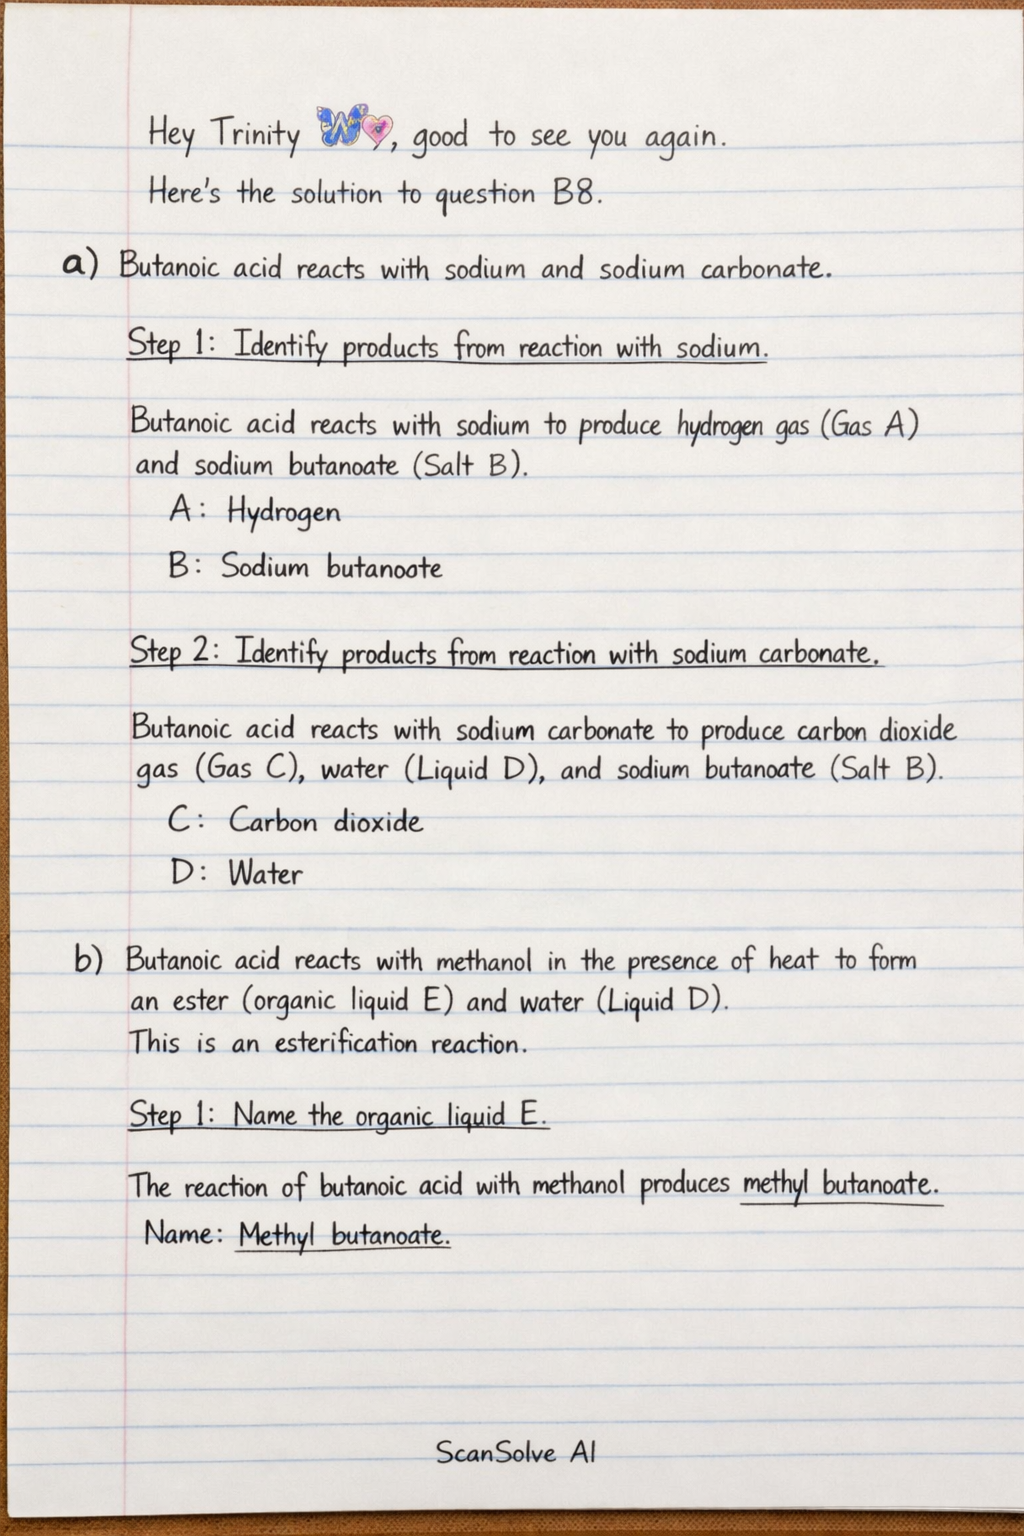 Hey Trinity W, good to see you again.
Here's the solution to question B8.
a) Butanoic acid reacts with sodium and sodium carbonate.
Step 1: Identify products from reaction with sodium.
Butanoic acid reacts with sodium to produce hydrogen gas (Gas A)
and sodium butanoate (Salt B).
A: Hydrogen
B: Sodium butanoate
Step 2: Identify products from reaction with sodium carbonate.
Butanoic acid reacts with sodium carbonate to produce carbon dioxide
gas (Gas C), water (Liquid D), and sodium butanoate (Salt B).
C: Carbon dioxide
D: Water
b) Butanoic acid reacts with methanol in the presence of heat to form
an ester (organic liquid E) and water (Liquid D).
This is an esterification reaction.
Step 1: Name the organic liquid E.
The reaction of butanoic acid with methanol produces methyl butanoate.
Name: Methyl butanoate.
ScanSolve AI